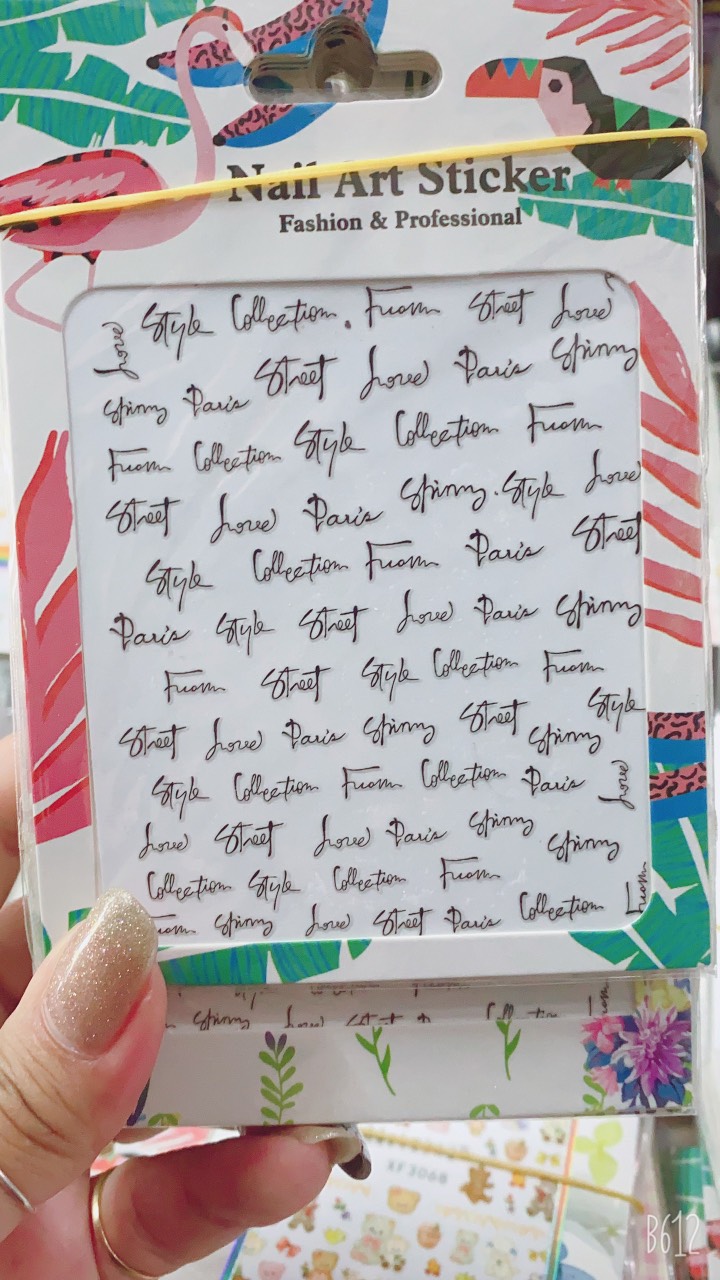 Nail Art Sticker
Fashion & Professional
Style Collection. Fuom Street Loved
Love
Spinny Paris Street Loved Paris Spinny
Fuom Collection Style Collection Fuom
Street Loved Paris Spinny. Style Loved
Style Collection Fuom Paris Street
Paris Style Street Loved Paris Spinny
Fuom Street Style Collection Fuom
Street Loved Paris Spinny Street Spinny Style
Style Collection Fuom Collection Paris Loved
Loved Street Loved Paris Spinny Spinny
Collection Style Collection Fuom
Fuom Spinny Loved Street Paris Collection Fuom
Spinny
XF3068
B612